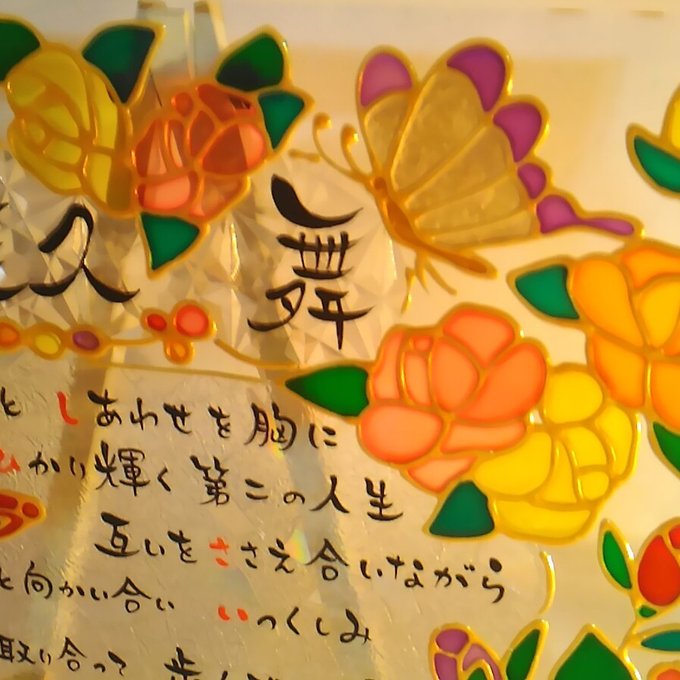 久 舞
と しあわせを胸に
ひかり輝く 第二の人生
互いをささえ合いながら
と向かい合い いつくしみ
取り合って 歩